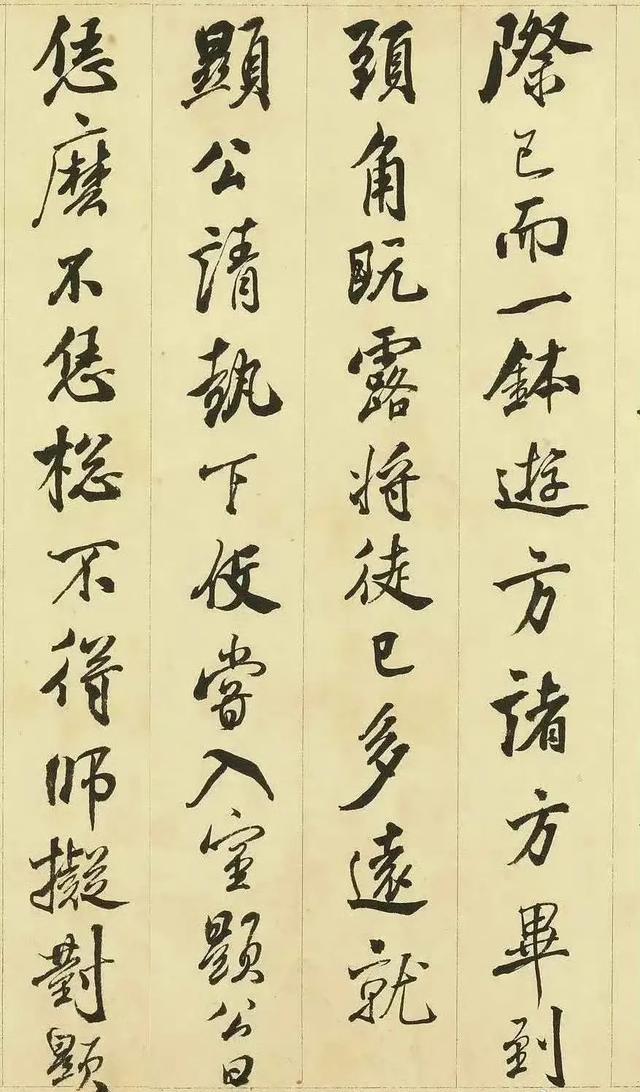 際已而一鉢遊方諸方畢到
頭角既露將徒已多遠就
顯公請執下役嘗入室顯公曰
恁麼不恁總不得師擬對顯